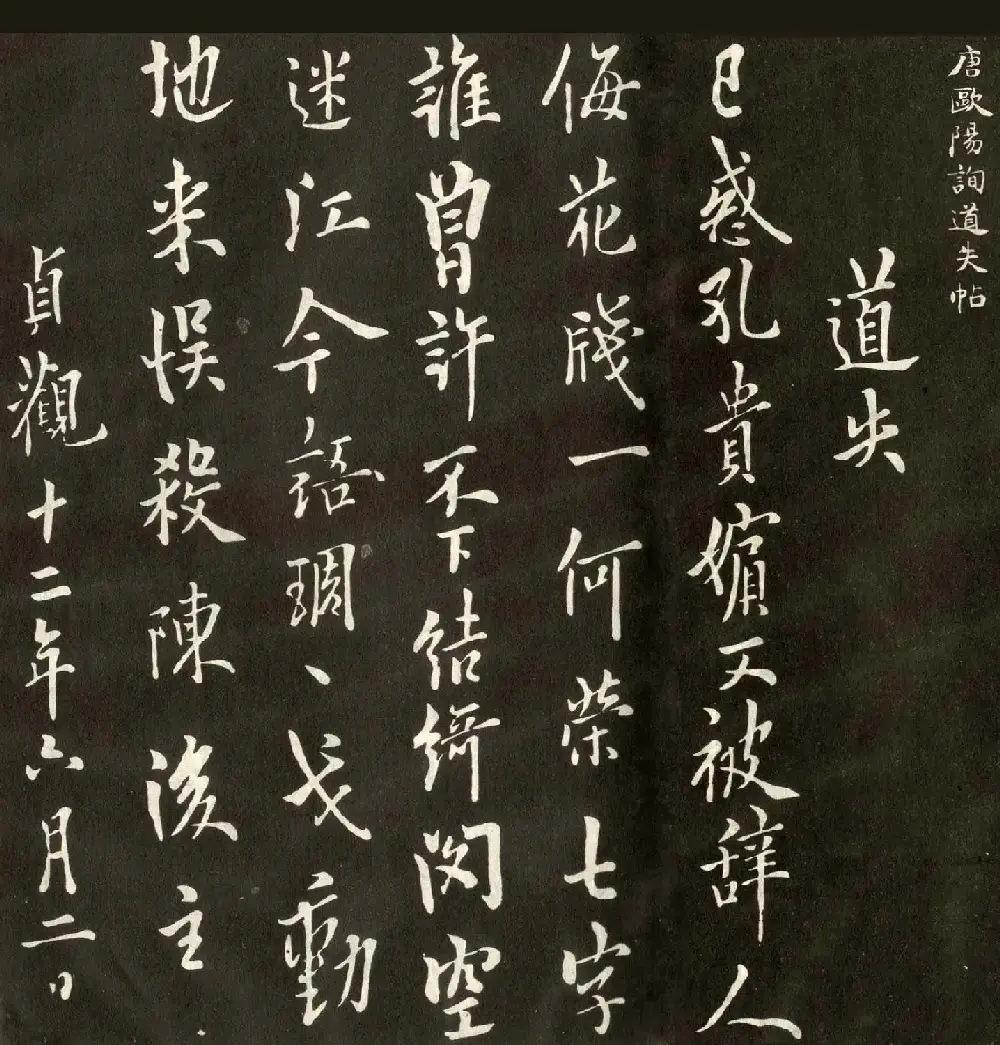 唐歐陽詢道失帖
道失
已惑孔貴嬪又被辞人
侮花牋一何荣七字
誰曾許不下結綺閣空
迷江令語琱丶戈動
地来悮殺陳後主
貞觀十二年六月二日